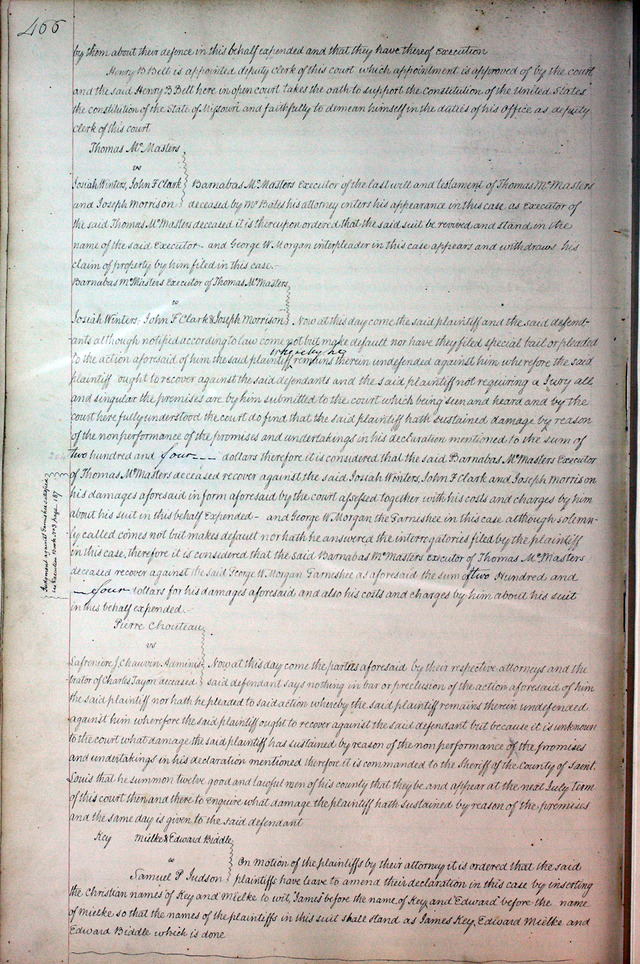 466
by them about their defence in this behalf expended and that they have thereof Execution
Henry B Belt is appointed deputy clerk of this court which appointment is approved of by the court
and the said Henry B Belt here in open court takes the oath to support the Constitution of the United States
the constitution of the State of Missouri and faithfully to demean himself in the duties of his Office as deputy
Clerk of this court
Thomas McMasters
vs
Josiah Winters, John F Clark
and Joseph Morrison
Barnabas McMasters Executor of the last will and testament of Thomas McMasters
deceased by Mr Bates his attorney enters his appearance in this case as Executor of
the said Thomas McMasters deceased it is thereupon ordered that the said suit be revived and stand in the
name of the said Executor and George W. Morgan interpleader in this case appears and withdraws his
claim of property by him filed in this case.
Barnabas McMasters Executor of Thomas McMasters
vs
Josiah Winters, John F Clark & Joseph Morrison
Now at this day come the said plaintiff and the said defend-
ants although notified according to law come not but make default nor have they filed special bail or pleaded
to the action aforesaid of him the said plaintiff whereby he remains therein undefended against him wherefore the said
plaintiff ought to recover against the said defendants and the said plaintiff not requiring a Jury all
and singular the premises are by him submitted to the court which being seen and heard and by the
court here fully understood the court do find that the said plaintiff hath sustained damage by reason
of the nonperformance of the promises and undertakings in his declaration mentioned to the sum of
two hundred and four - - - dollars therefore it is considered that the said Barnabas McMasters Executor
of Thomas McMasters deceased recover against the said Josiah Winters, John F Clark and Joseph Morrison
his damages aforesaid in form aforesaid by the court assessed together with his costs and charges by him
about his suit in this behalf Expended - and George W. Morgan the Garnishee in this case although solemn-
ly called comes not but makes default nor hath he answered the interrogatories filed by the plaintiff
in this case, therefore it is considered that the said Barnabas McMasters executor of Thomas McMasters
deceased recover against the said George W. Morgan Garnishee as aforesaid the sum of two Hundred and
- four dollars for his damages aforesaid and also his costs and charges by him about his suit
in this behalf expended.
Judgment against Garnishee
Pierre Chouteau
vs
Lafreniere J. Chauvin Adminis
trator of Charles Tayon deceased
Now at this day come the parties aforesaid by their respective attorneys and the
said defendant says nothing in bar or preclusion of the action aforesaid of him
the said plaintiff nor hath he pleaded to said action whereby the said plaintiff remains therein undefended
against him wherefore the said plaintiff ought to recover against the said defendant but because it is unknown
to the court what damage the said plaintiff has sustained by reason of the non performance of the promises
and undertakings in his declaration mentioned therefore it is commanded to the Sheriff of the County of Saint
Louis that he summon twelve good and lawful men of his county that they be and appear at the next July term
of this court then and there to enquire what damage the plaintiff hath sustained by reason of the premises
and the same day is given to the said defendant
Key Mielke & Edward Biddle
vs
Samuel P. Judson
On motion of the plaintiffs by their attorney it is ordered that the said
plaintiffs have leave to amend their declaration in this case by inserting
the christian names of Key and Mielke to wit, "James" before the name of Key, and "Edward" before the name
of Mielke so that the names of the plaintiffs in this suit shall stand as James Key, Edward Mielke and
Edward Biddle which is done